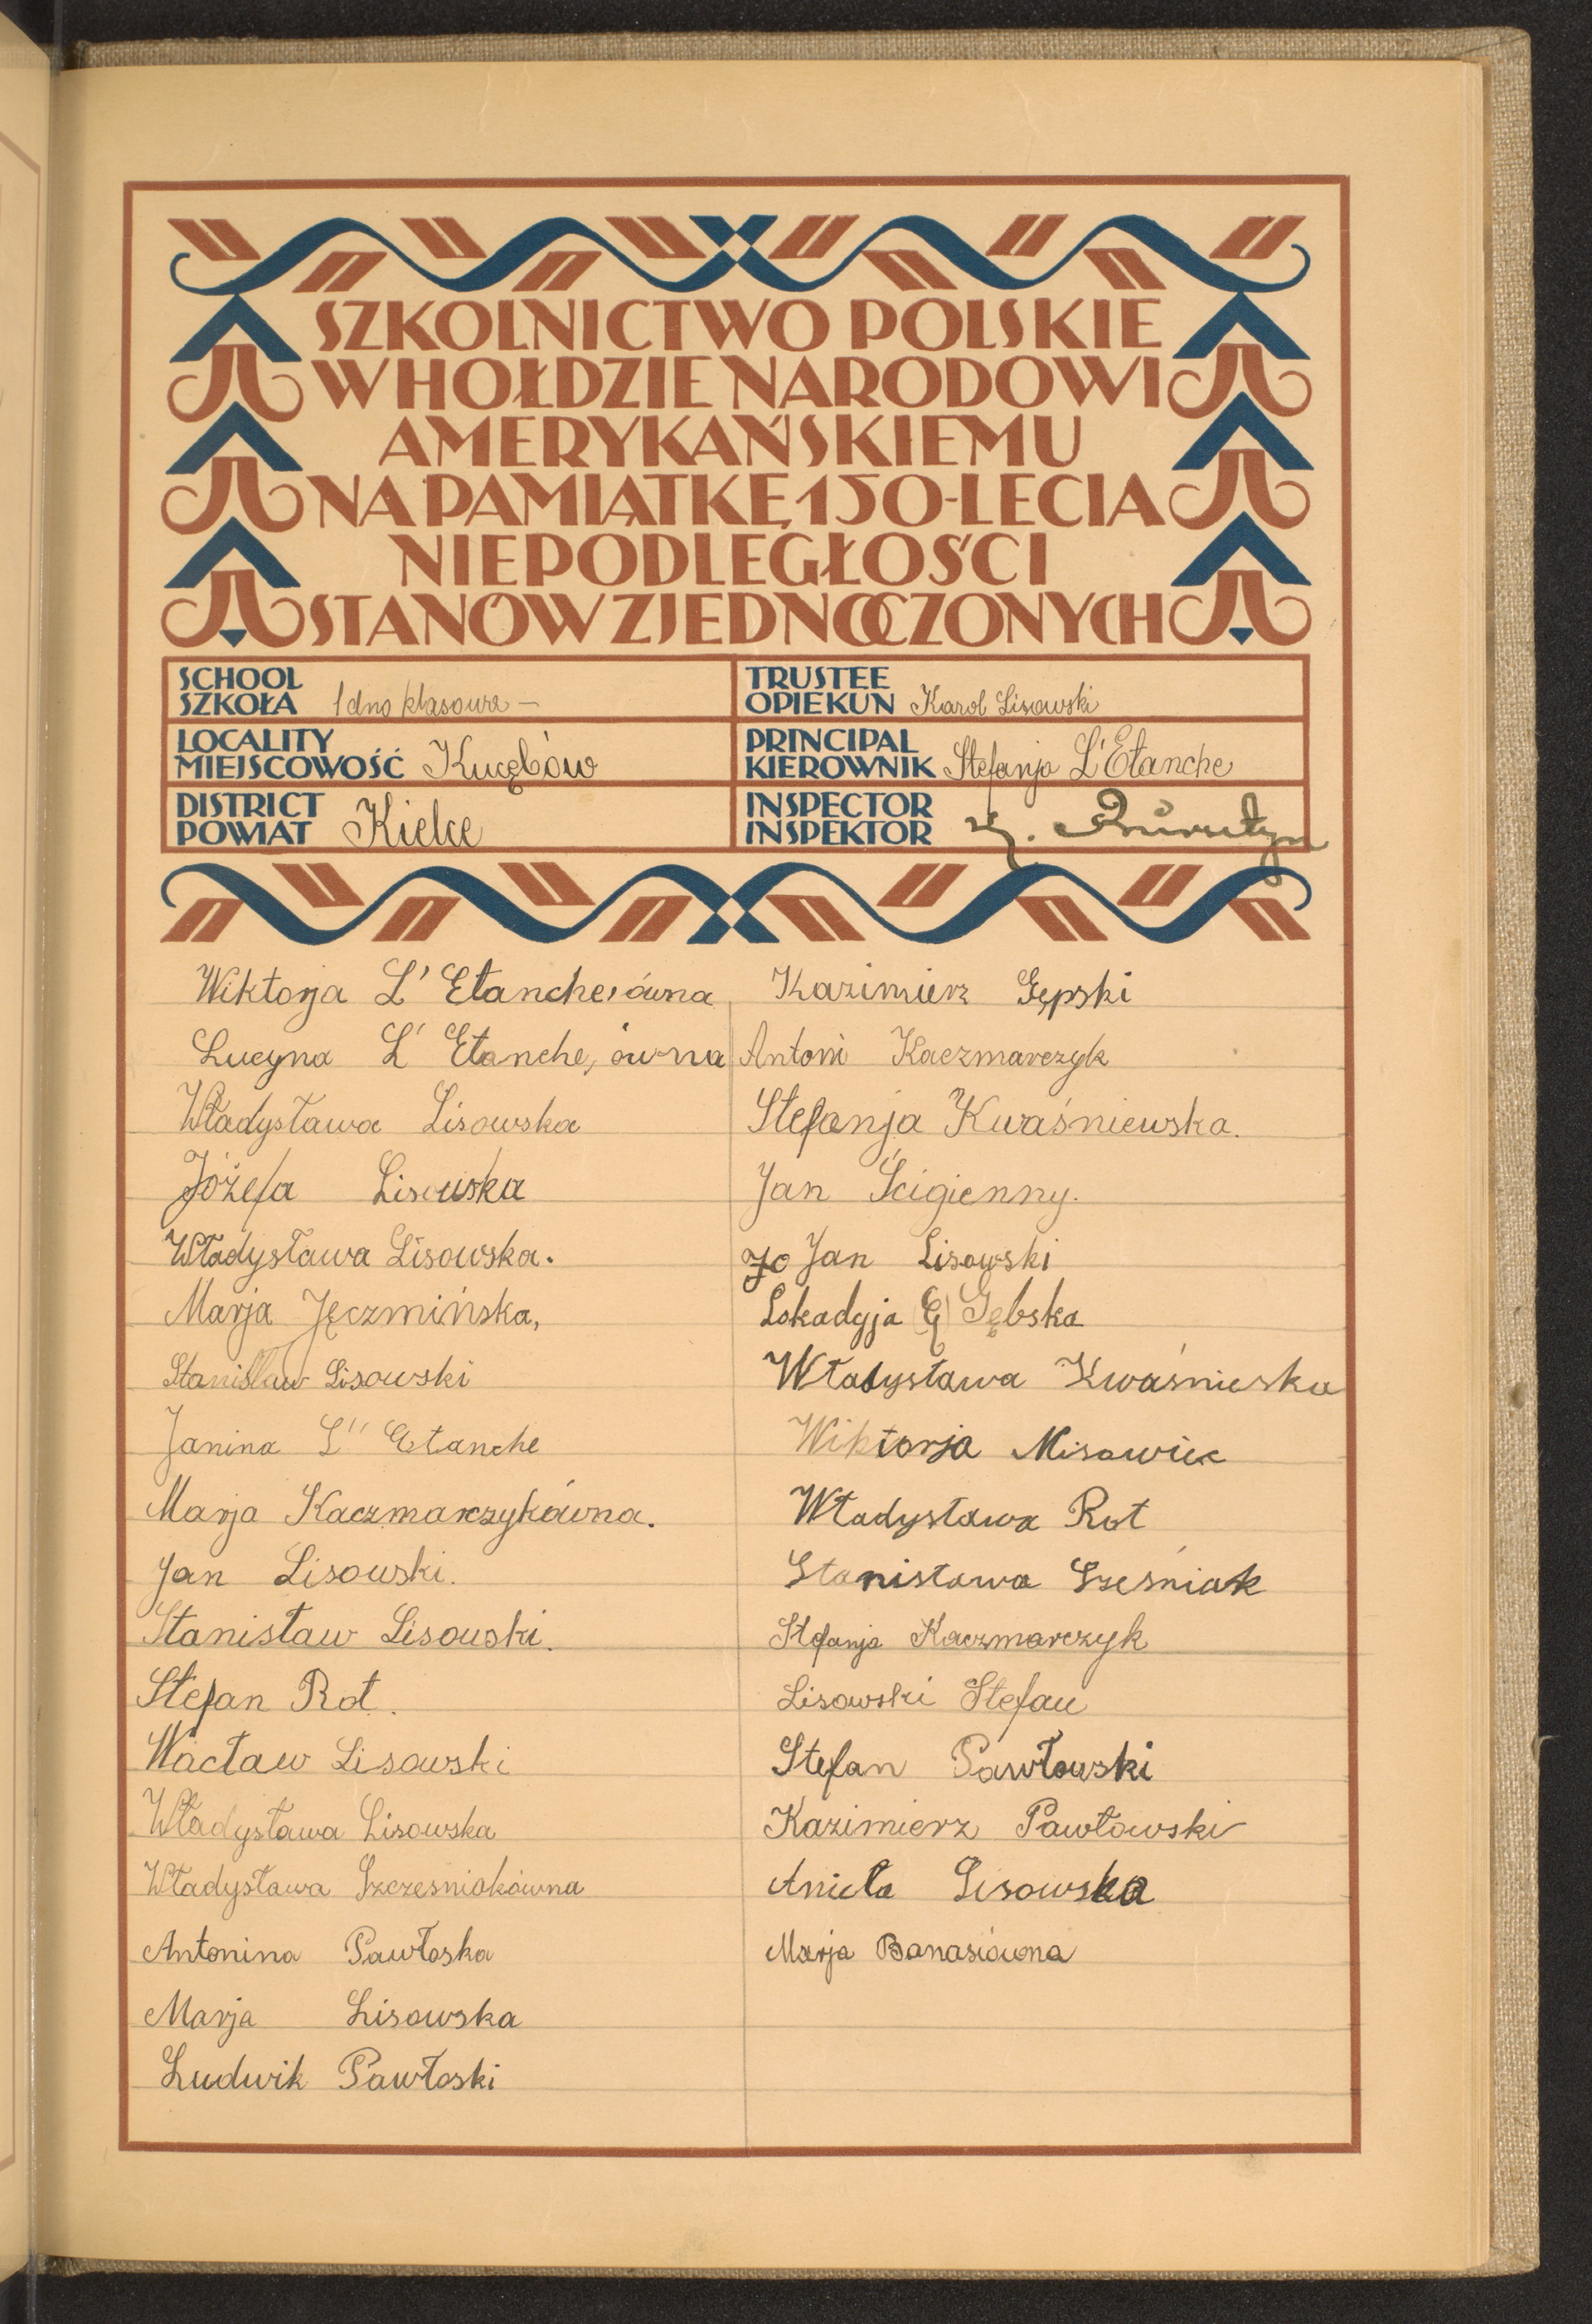 SZKOLNICTWO POLSKIE
W HOŁDZIE NARODOWI
AMERYKAŃSKIEMU
NA PAMIĄTKĘ 150-LECIA
NIEPODLEGŁOŚCI
STANÓW ZJEDNOCZONYCH
SCHOOL
SZKOŁA 1dno klasowa –
TRUSTEE
OPIEKUN Karol Lisowski
LOCALITY
MIEJSCOWOŚĆ Kucębów
PRINCIPAL
KIEROWNIK Stefanja L'Etanche
DISTRICT
POWIAT Kielce
INSPECTOR
INSPEKTOR
Wiktorja L' Etanche,ówna
Lucyna L' Etanche, ówna
Władysława Lisowska
Józefa Lisowska
Władysława Lisowska.
Marja Jęczmińska,
Stanisław Lisowski
Janina L'' Etanche
Marja Kaczmarczykówna.
Jan Lisowski.
Stanisław Lisowski.
Stefan Rot.
Wacław Lisowski
Władysława Lisowska
Władysława Szczesniakówna
Antonina Pawłoska
Marja Lisowska
Ludwik Pawłoski
Kazimierz Gępski
Antoni Kaczmarczyk
Stefanja Kwaśniewska.
Jan Ścigienny.
Jan Lisowski
Lokadyja (G) Gębska
Władysława Kwaśnieska
Wiktorja Misowiec
Władysława Rot
Stanisława Sześniak
Stefanja Kaczmarczyk
Lisowski Stefan
Stefan Pawłowski
Kazimierz Pawłowski
Aniela Lisowska
Marja Banasiówna